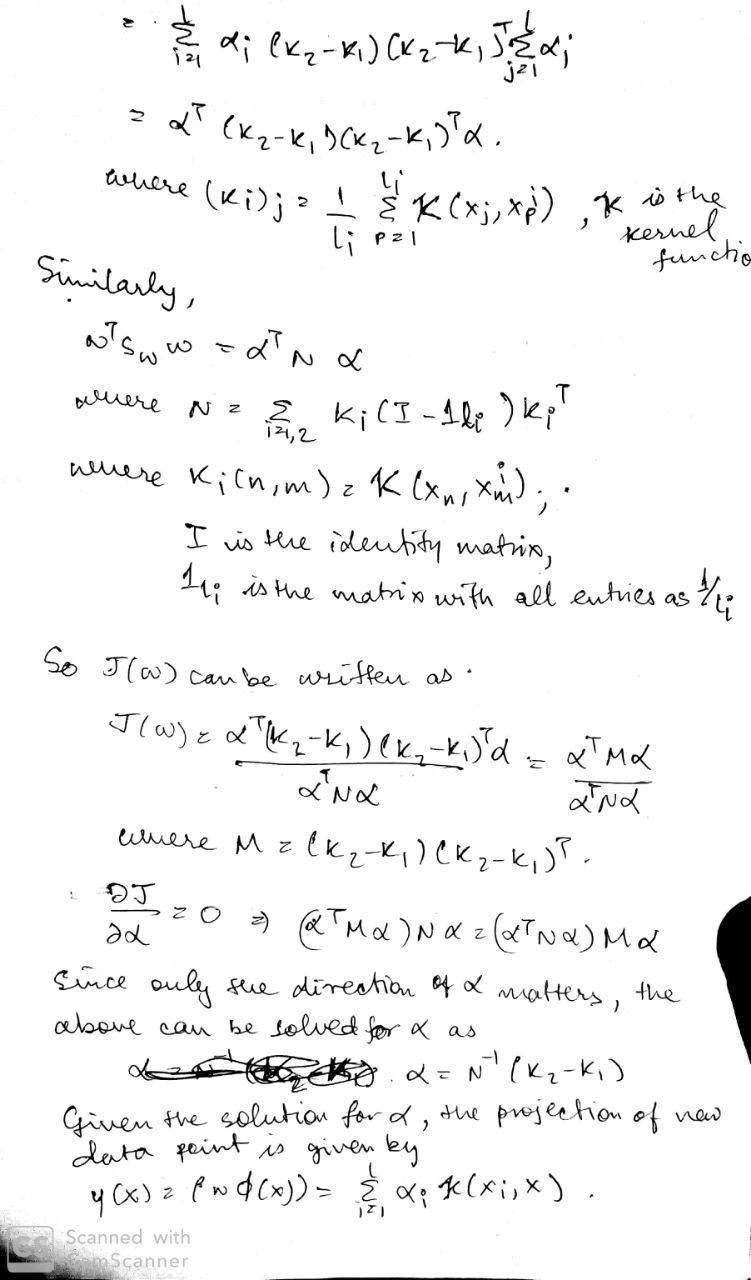 = Σ_{i=1}^{l} α_i (K₂-K₁)(K₂-K₁)^T Σ_{j=1}^{l} α_j
= α^T (K₂-K₁)(K₂-K₁)^T α.
where (K_i)_j = 1/l_i Σ_{p=1}^{l_i} K(x_j, x_p^i) , K is the
kernel
functio
Similarly,
w^T S_w w = α^T N α
where N = Σ_{i=1,2} K_i (I - 1_{l_i}) K_i^T
where K_i(n,m) = K(x_n, x_m^i);.
I is the identity matrix,
1_{l_i} is the matrix with all entries as 1/l_i
So J(w) can be written as.
J(w) = α^T(K₂-K₁)(K₂-K₁)^T α / α^T N α = α^T M α / α^T N α
where M = (K₂-K₁)(K₂-K₁)^T.
∂J/∂α = 0 ⇒ (α^T M α) N α = (α^T N α) M α
Since only the direction of α matters, the
above can be solved for α as
α = N^{-1} (K₂-K₁)
Given the solution for α, the projection of new
data point is given by
y(x) = (w φ(x)) = Σ_{i=1}^{l} α_i K(x_i, x).
CS Scanned with
CamScanner